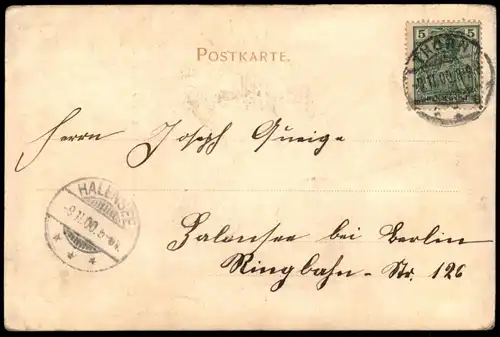 POSTKARTE.
5 5
THORN
-8.11.00.
Herrn Joseph Queige
HALENSEE
-9.11.00.
* * *
Halensee bei Berlin
Ringbahn-Str. 126